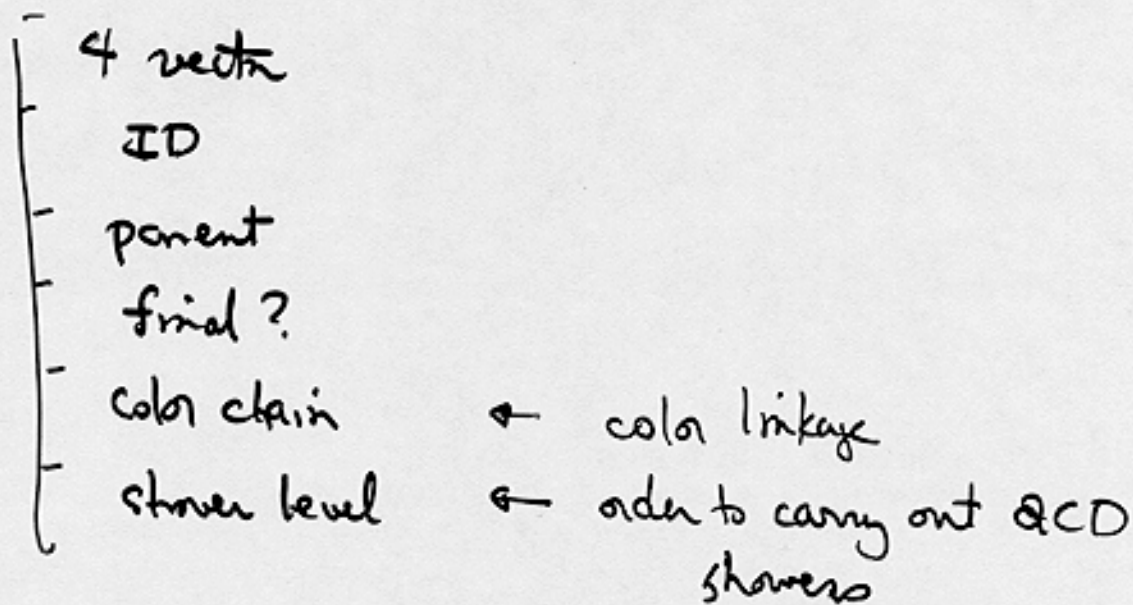 4 vector
ID
parent
final ?
color chain ← color linkage
shower level ← order to carry out QCD
showers